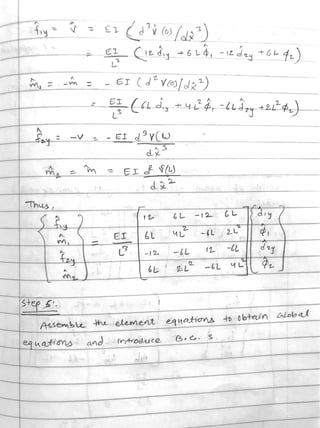 f̂₁y = V̂ = EI (d³v̂(0)/dx̂³)
= EI/L³ (12 d̂₁y + 6L φ̂₁ - 12 d̂₂y + 6L φ̂₂)
m̂₁ = -m̂ = - EI (d²v̂(0)/dx̂²)
= EI/L³ (6L d̂₁y + 4L² φ̂₁ - 6L d̂₂y + 2L² φ̂₂)
f̂₂y = -V = - EI d³v̂(L)/dx̂³
m̂₂ = m̂ = EI d² v̂(L)/dx̂²
Thus,
{f̂₁y m̂₁ f̂₂y m̂₂} = EI/L³ [12 6L -12 6L
6L 4L² -6L 2L²
-12 -6L 12 -6L
6L 2L² -6L 4L²] {d̂₁y φ̂₁ d̂₂y φ̂₂}
Step 5:
Assemble the element equations to obtain Global
equations and introduce B.C.'s.